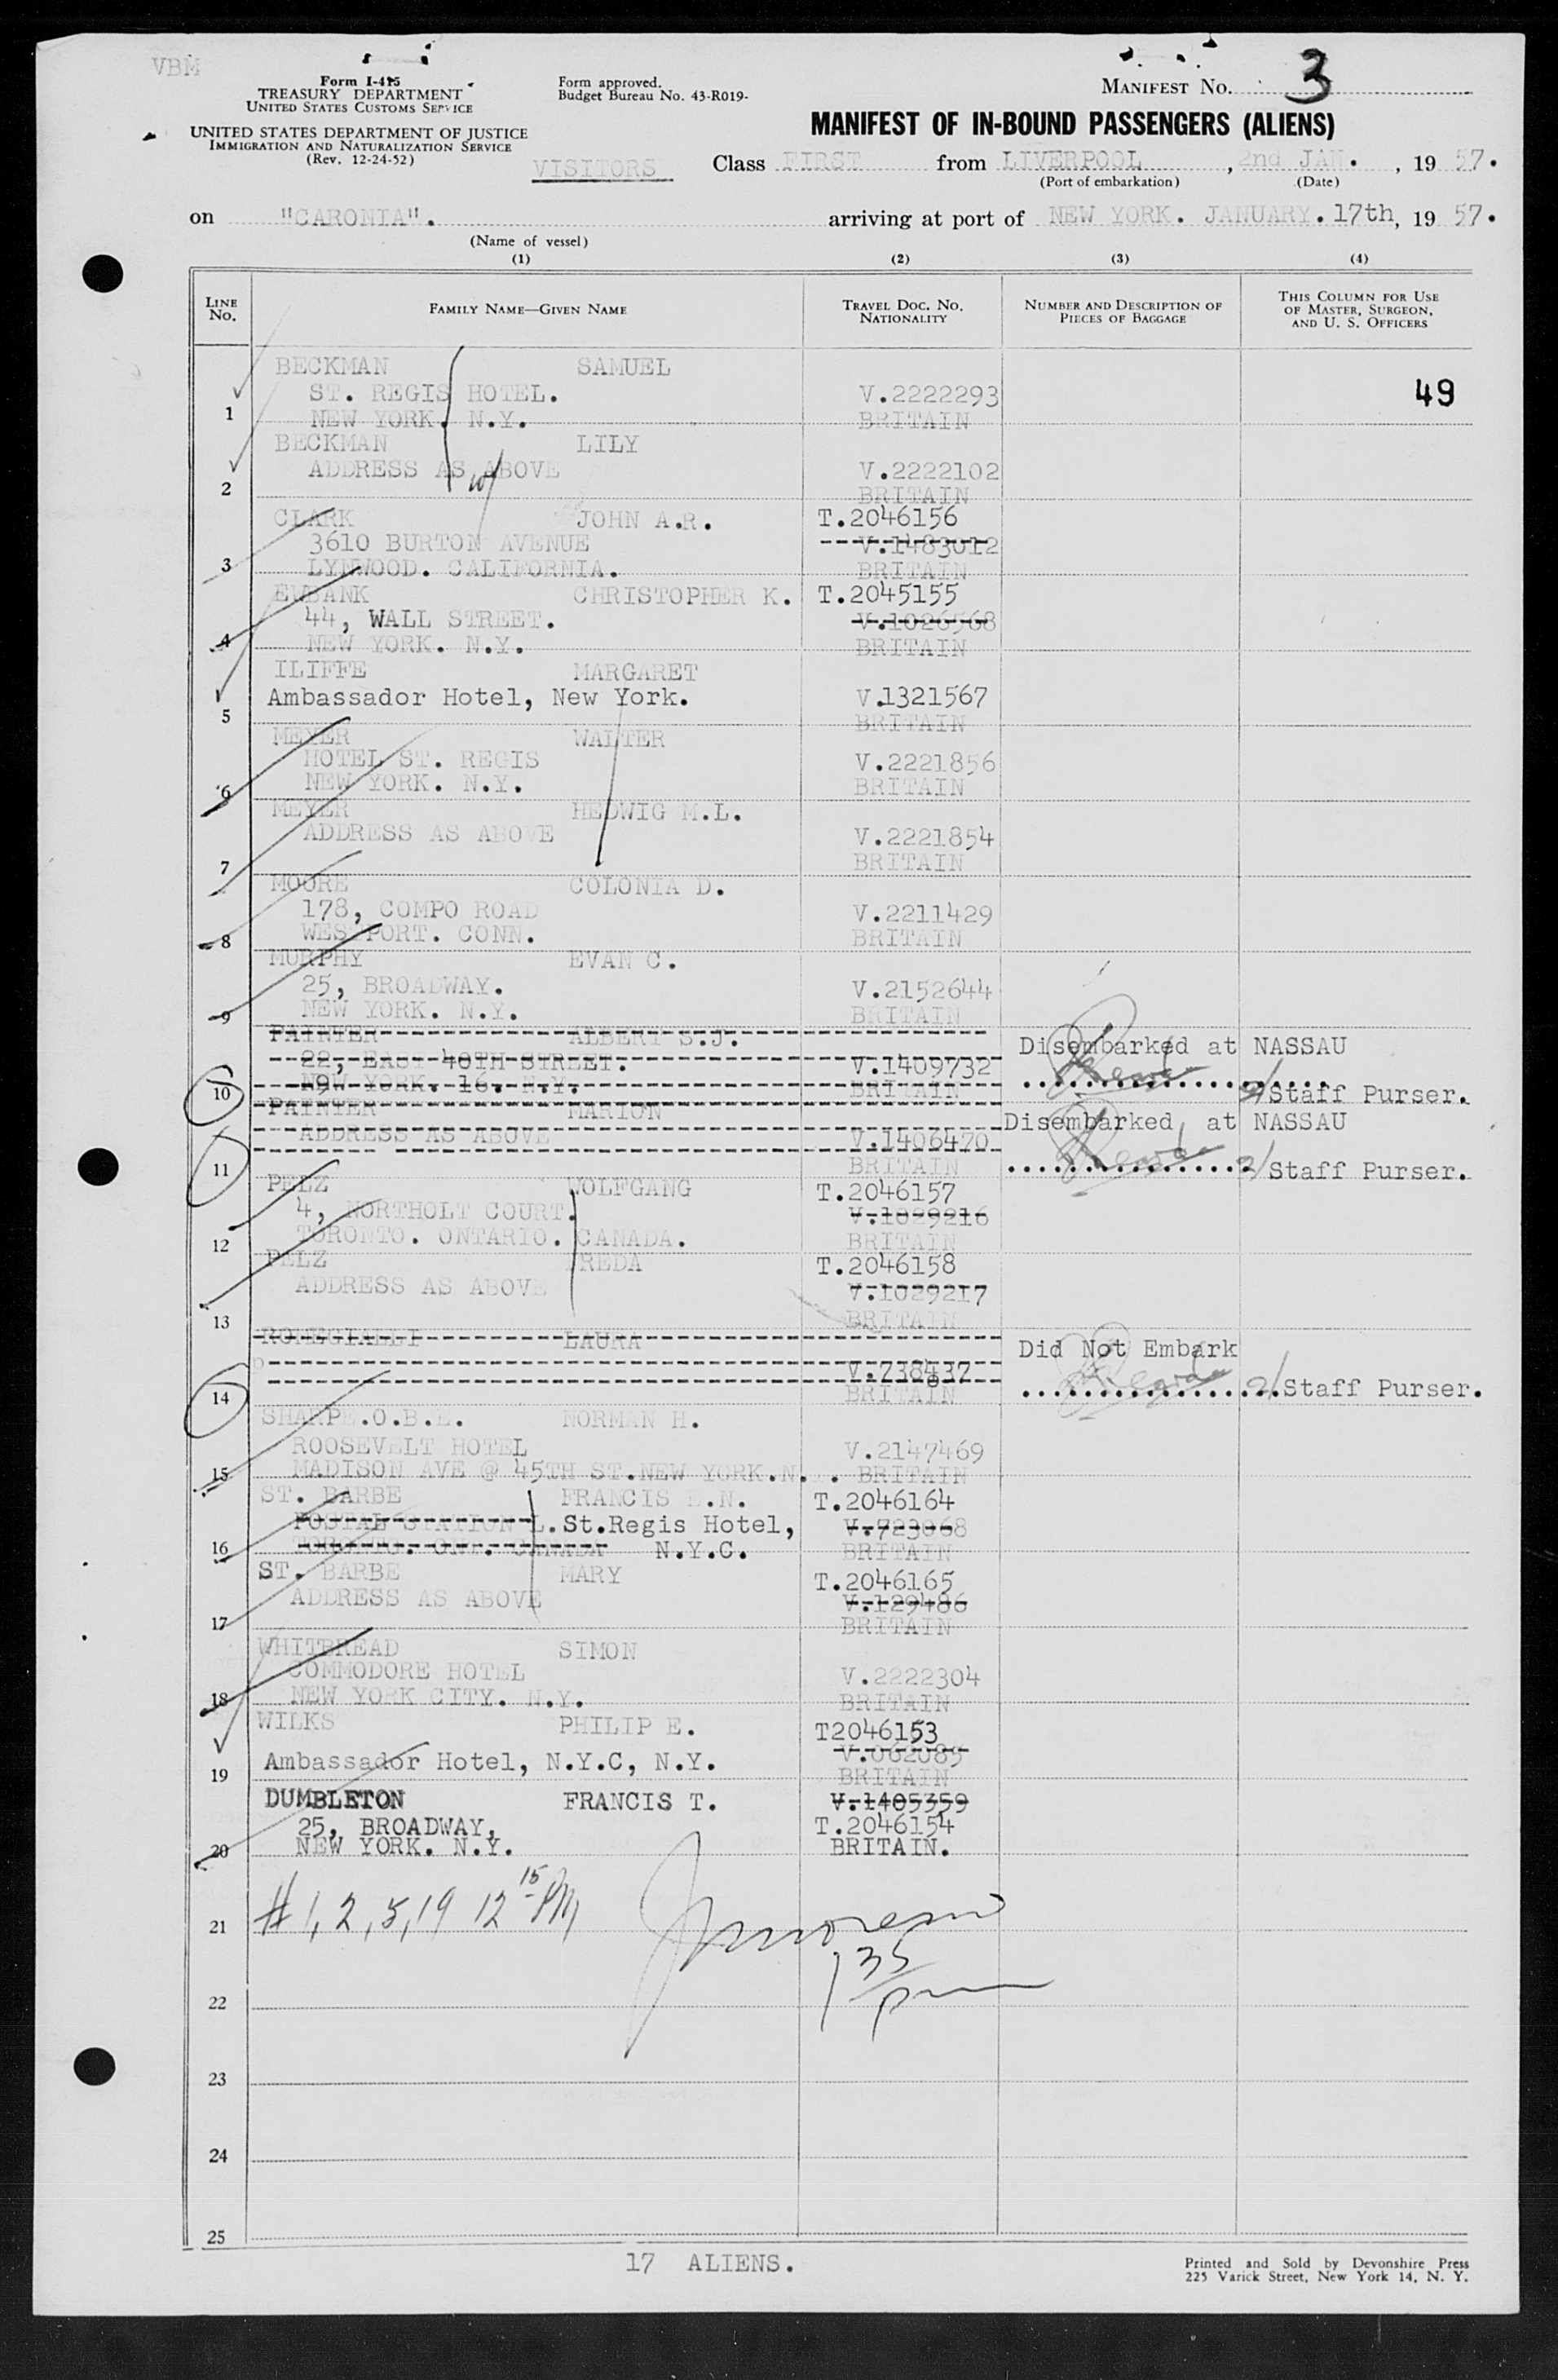 VBM
Form I-415
TREASURY DEPARTMENT
UNITED STATES CUSTOMS SERVICE
UNITED STATES DEPARTMENT OF JUSTICE
IMMIGRATION AND NATURALIZATION SERVICE
(Rev. 12-24-52)
Form approved.
Budget Bureau No. 43-R019-
MANIFEST NO. 3
MANIFEST OF IN-BOUND PASSENGERS (ALIENS)
VISITORS Class FIRST from LIVERPOOL, 2nd JAN., 19 57.
(Port of embarkation) (Date)
on "CARONIA". arriving at port of NEW YORK. JANUARY. 17th, 19 57.
(Name of vessel)
(1) (2) (3) (4)
LINE NO. FAMILY NAME—GIVEN NAME TRAVEL DOC. NO. NATIONALITY NUMBER AND DESCRIPTION OF PIECES OF BAGGAGE THIS COLUMN FOR USE OF MASTER, SURGEON, AND U. S. OFFICERS
BECKMAN SAMUEL
ST. REGIS HOTEL. V.2222293 49
1 NEW YORK. N.Y. BRITAIN
BECKMAN LILY
ADDRESS AS ABOVE V.2222102
2 BRITAIN
CLARK JOHN A.R. T.2046156
3610 BURTON AVENUE V.1483012
3 LYNWOOD. CALIFORNIA. BRITAIN
EWBANK CHRISTOPHER K. T.2045155
44, WALL STREET. V.1026568
4 NEW YORK. N.Y. BRITAIN
ILIFFE MARGARET
Ambassador Hotel, New York. V.1321567
5 BRITAIN
MEYER WALTER
HOTEL ST. REGIS V.2221856
6 NEW YORK. N.Y. BRITAIN
MEYER HEDWIG M.L.
ADDRESS AS ABOVE V.2221854
7 BRITAIN
MOORE COLONIA D.
178, COMPO ROAD V.2211429
8 WESTPORT. CONN. BRITAIN
MURPHY EVAN C.
25, BROADWAY. V.2152644
9 NEW YORK. N.Y. BRITAIN
PAINTER ALBERT S.J. Disembarked at NASSAU
22, EAST 40TH STREET. V.1409732
10 NEW YORK. 16. N.Y. BRITAIN Staff Purser.
PAINTER MARION Disembarked at NASSAU
ADDRESS AS ABOVE V.1406470
11 BRITAIN Staff Purser.
PELZ WOLFGANG T.2046157
4, NORTHOLT COURT. V.1029216
12 TORONTO. ONTARIO. CANADA. BRITAIN
PELZ FREDA T.2046158
ADDRESS AS ABOVE V.1029217
13 BRITAIN
ROMEGIALLI LAURA Did Not Embark
V.738437
14 BRITAIN Staff Purser.
SHARPE.O.B.E. NORMAN H.
ROOSEVELT HOTEL V.2147469
15 MADISON AVE @ 45TH ST.NEW YORK.N. . BRITAIN
ST. BARBE FRANCIS E.N. T.2046164
POSTAL STATION L. St.Regis Hotel, V.723068
16 TORONTO. ONT. CANADA N.Y.C. BRITAIN
ST. BARBE MARY T.2046165
ADDRESS AS ABOVE V.129486
17 BRITAIN
WHITBREAD SIMON
COMMODORE HOTEL V.2222304
18 NEW YORK CITY. N.Y. BRITAIN
WILKS PHILIP E. T2046153
Ambassador Hotel, N.Y.C, N.Y. V.062085
19 BRITAIN
DUMBLETON FRANCIS T. V.1405359
25, BROADWAY, T.2046154
20 NEW YORK. N.Y. BRITAIN.
21 # 1, 2, 5, 19 12 15 PM
1 35 pm
22
23
24
25
17 ALIENS.
Printed and Sold by Devonshire Press
225 Varick Street, New York 14, N. Y.